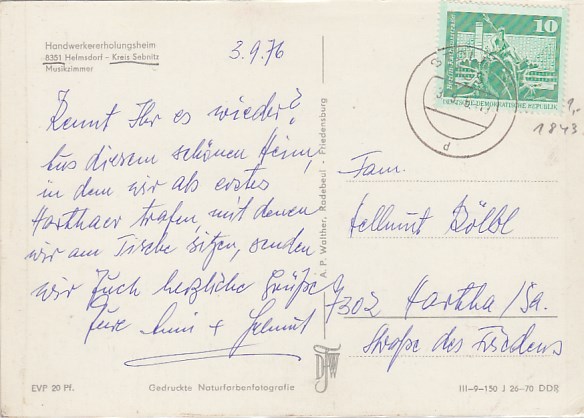 Handwerkererholungsheim
8351 Helmsdorf – Kreis Sebnitz
Musikzimmer
3.9.76
Kennt Ihr es wieder?
Aus diesem schönen Heim,
in dem wir als erstes
Harthaer trafen mit denen
wir am Tische sitzen, senden
wir Euch herzliche Grüße
Eure Anni + Helmut
EVP 20 Pf.
Gedruckte Naturfarbenfotografie
A. P. Walther, Radebeul - Friedensburg
10
DEUTSCHE DEMOKRATISCHE REPUBLIK
d
1,-
1843
Fam.
Hellmut Bölbl
7302 Hartha/Sa.
Straße des Friedens
III–9–150 J 26–70 DDR